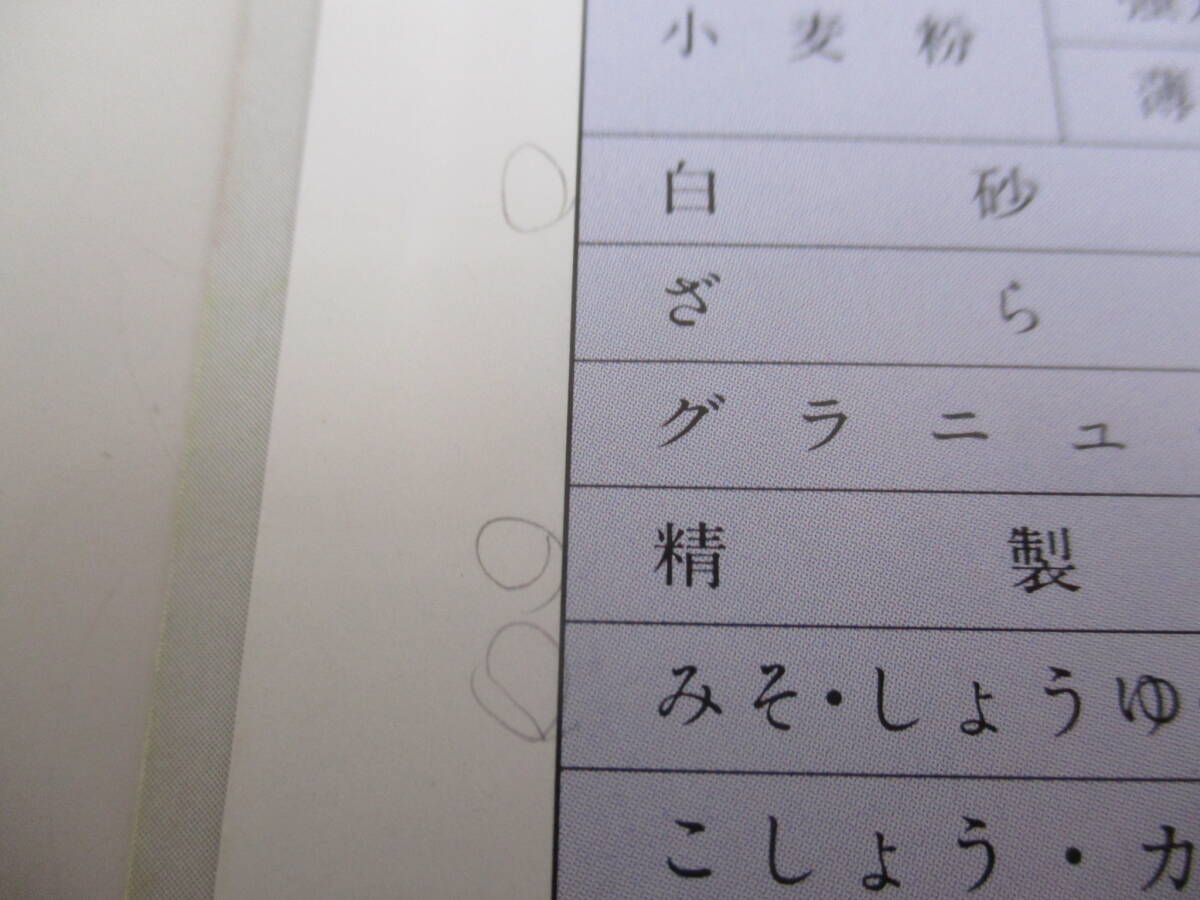 小麦粉
薄
白砂
ざら
グラニュ
精製
みそ・しょうゆ
こしょう・カ